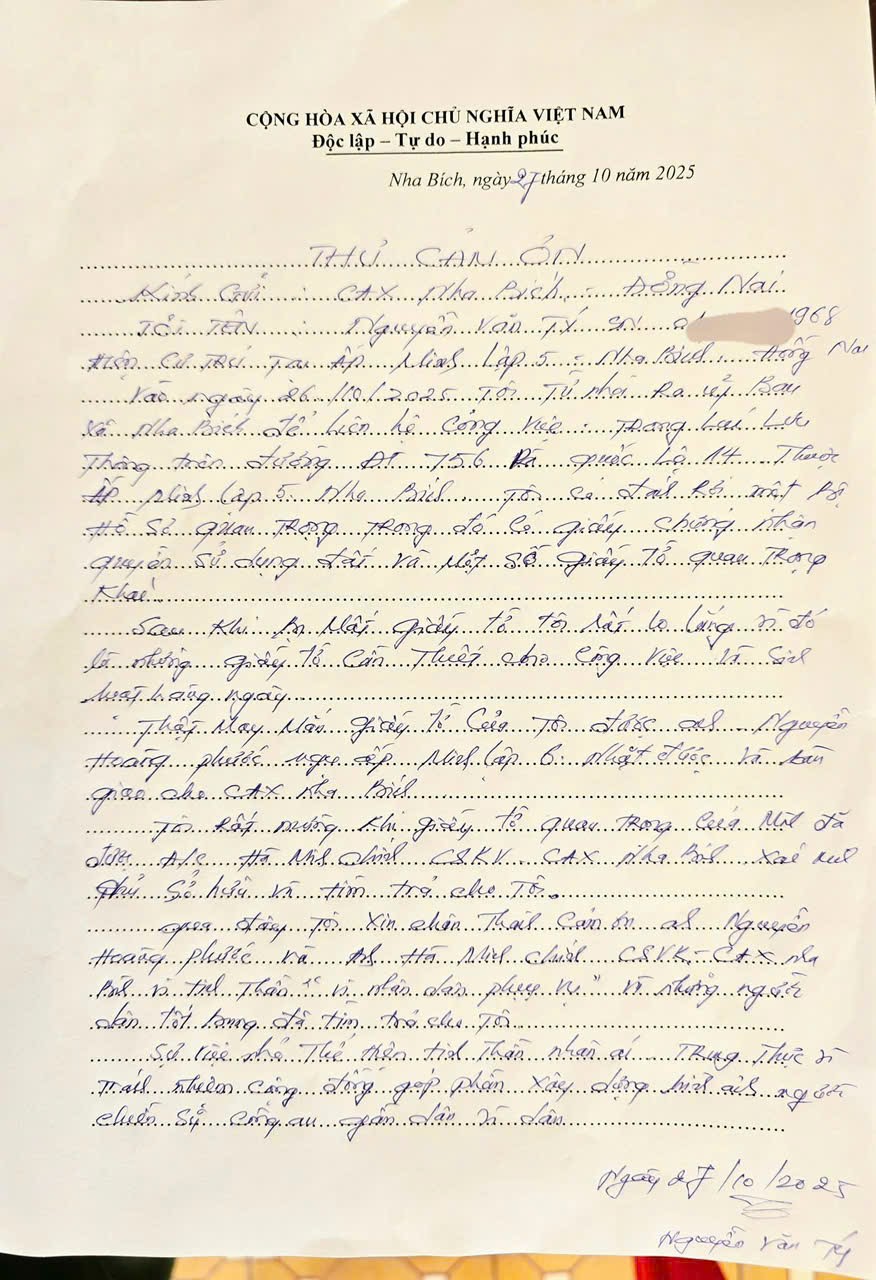 CỘNG HÒA XÃ HỘI CHỦ NGHĨA VIỆT NAM
Độc lập – Tự do – Hạnh phúc
Nha Bích, ngày 27 tháng 10 năm 2025
THƯ CẢM ƠN
Kính Gửi : CAX Nha Bích - Đồng Nai
TÔI TÊN : Nguyễn Văn Tý SN 1968
Hiện Cư Trú Tại ấp Minh Lập 5 - Nha Bích - Đồng Nai
Vào ngày 26/10/2025 Tôi Từ nhà Ra uỷ Ban
Xã Nha Bích để Liên hệ Công Việc. Trong Lúc Lưu
Thông trên đường ĐT 756 quốc Lộ 14 Thuộc
ấp Minh Lập 5 Nha Bích Tôi có đánh Rơi một Bộ
Hồ Sơ quan Trọng Trong đó Có giấy chứng nhận
quyền Sử dụng đất Và Một Số giấy Tờ quan Trọng
Khác
Sau Khi Bị Mất giấy tờ tôi Rất lo lắng vì đó
là những giấy tờ Cần Thiết cho Công Việc Và Sinh
hoạt hàng ngày
Thật May Mắn giấy tờ Của Tôi được anh Nguyễn
Hoàng phước ngụ ấp Minh Lập 6 Nhặt được Và bàn
giao cho CAX Nha Bích
Tôi Rất mừng Khi giấy tờ quan trọng Của Mình đã
được A/c Hà Minh chính CSKV CAX Nha Bích Xác minh
chủ Sở hữu Và tìm trả cho Tôi.
qua đây Tôi Xin chân Thành Cảm ơn anh Nguyễn
Hoàng phước Và Anh Hà Minh chính CSVK - CAX nha
Bích vì tinh Thần "vì nhân dân phục Vụ" Và những người
dân tốt bụng đã tìm trả cho Tôi
Sự Việc nhỏ Thể hiện tinh Thần nhân ái Trung Thực Và
Trách nhiệm cộng đồng góp phần Xây dựng hình ảnh người
chiến Sỹ công an gần dân Vì dân
Ngày 27/10/2025
Nguyễn Văn Tý